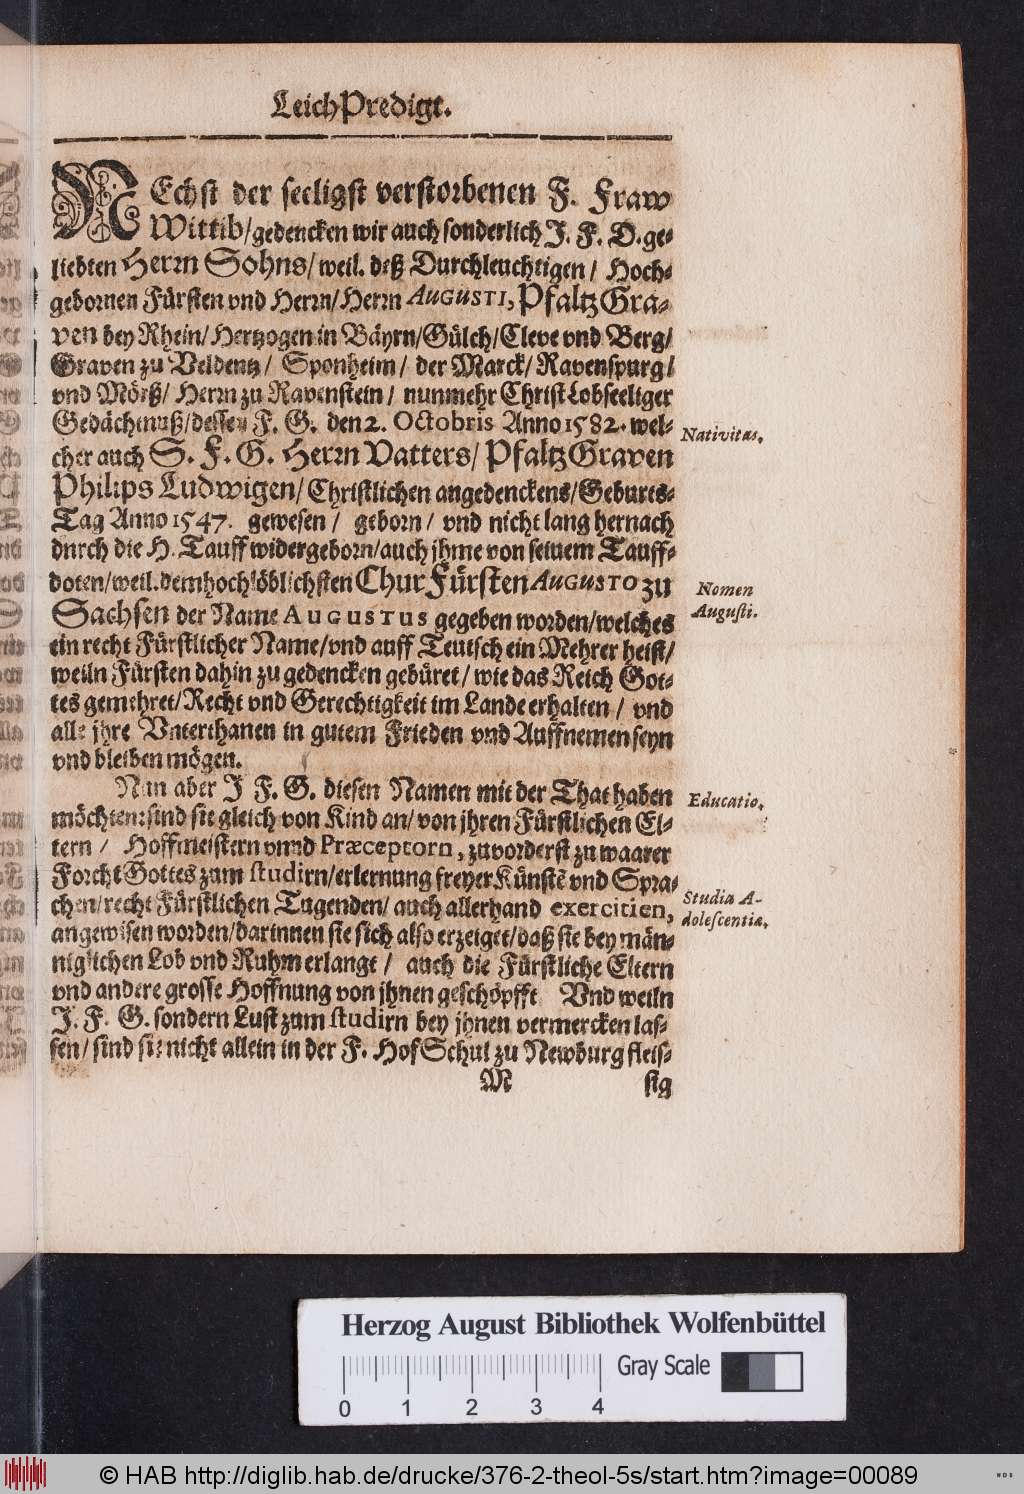 LeichPredigt.
NEchst der seeligst verstorbenen F. Fraw
Wittib/gedencken wir auch sonderlich J. F. D. ge-
liebten Herrn Sohns/ weil. deß Durchleuchtigen/ Hoch-
gebornen Fürsten vnd Herrn/Herrn AUGUSTI, PfaltzGra-
ven bey Rhein/ Hertzogen in Bäyrn/Gülch/Cleve vnd Berg/
Graven zu Veldentz/ Sponheim/ der Marck/ Ravenspurg/
vnd Mörß/ Herrn zu Ravenstein/ nunmehr Christ Lobseeliger
Gedächtnuß/dessen F. G. den 2. Octobris Anno 1582. wel-
cher auch S. F. G. Herrn Vatters/ PfaltzGraven
Philips Ludwigen/ Christlichen angedenckens/Geburts-
Tag Anno 1547. gewesen/ geborn/ vnd nicht lang hernach
durch die H. Tauff widergeborn/auch jhme von seinem Tauff-
doten/weil. dem hochlöblichsten ChurFürsten AUGUSTO zu
Sachsen der Name AUGUSTUS gegeben worden/welches
ein recht Fürstlicher Name/vnd auff Teutsch ein Mehrer heist/
weiln Fürsten dahin zu gedencken gebüret/ wie das Reich Got-
tes gemehret/Recht vnd Gerechtigkeit im Lande erhalten/ vnd
alle jhre Vnterthanen in gutem Frieden vnd Auffnemen seyn
vnd bleiben mögen.
Nun aber J F. G. diesen Namen mit der That haben
möchten: sind sie gleich von Kind an/ von jhren Fürstlichen El-
tern/ Hoffmeistern vnnd Præceptorn, zuvorderst zu waarer
Forcht Gottes zum studirn/erlernung freyer Künstē vnd Spra-
chen/recht Fürstlichen Tugenden/ auch allerhand exercitien,
angewisen worden/darinnen sie sich also erzeiget/daß sie bey män-
niglichen Lob vnd Ruhm erlangt/ auch die Fürstliche Eltern
vnd andere grosse Hoffnung von jhnen geschöpfft Vnd weiln
J. F. G. sondern Lust zum studirn bey jhnen vermercken las-
sen/ sind sie nicht allein in der F. HofSchul zu Newburg fleis-
M sig
Nativitas.
Nomen
Augusti.
Educatio.
Studia A-
dolescentiæ.
Herzog August Bibliothek Wolfenbüttel
Gray Scale
0 1 2 3 4
© HAB http://diglib.hab.de/drucke/376-2-theol-5s/start.htm?image=00089